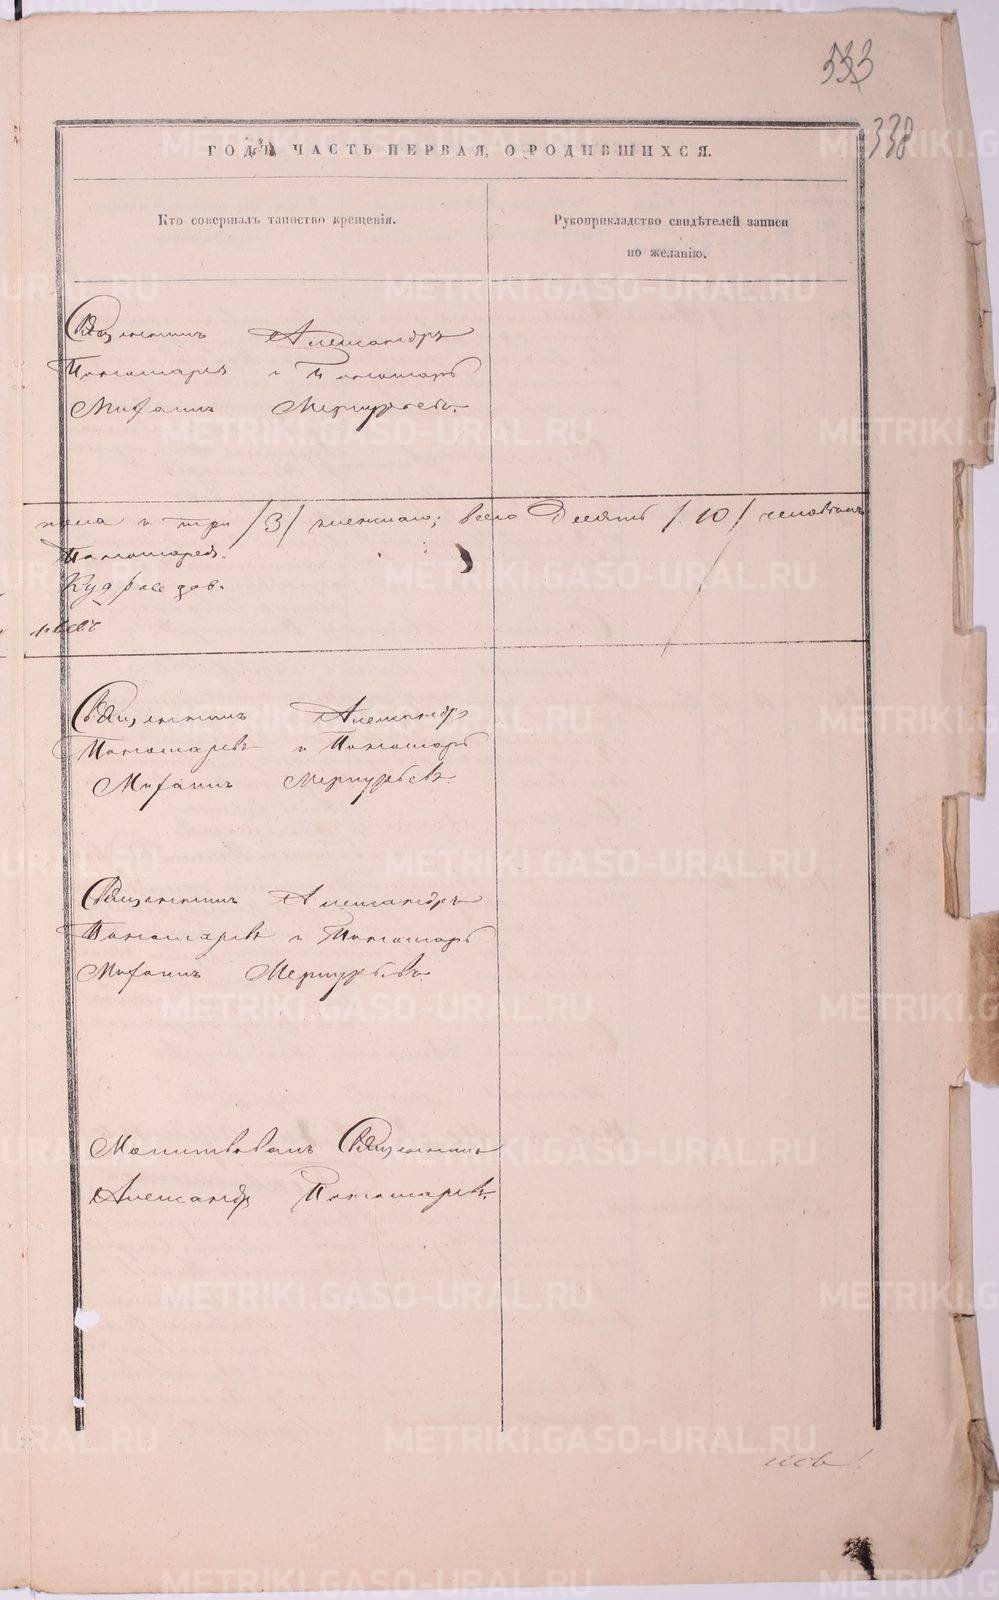 333
338
ГОДЪ, ЧАСТЬ ПЕРВАЯ, О РОДИВШИХСЯ.
Кто совершалъ таинство крещенія.
Рукоприкладство свидѣтелей записи
по желанію.
Священникъ Александръ
Пономаревъ и Пономарь
Михаилъ Меркурьевъ.
пола и три /3/ женскаго; всего Десять /10/ человѣкъ
Пономаревъ.
Священникъ Александръ
Пономаревъ и Пономарь
Михаилъ Меркурьевъ.
Священникъ Александръ
Пономаревъ и Пономарь
Михаилъ Меркурьевъ.
Молитвовалъ Священникъ
Александръ Пономаревъ.
METRIKI.GASO-URAL.RU